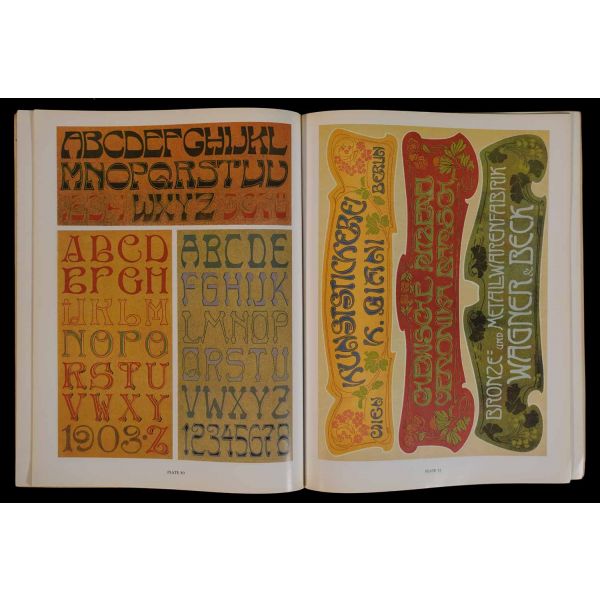 ABCDEFGHIJKL
MNOPQRSTUV
WXYZ
ABCD
EFGH
IJKLM
NOPQ
RSTU
VWXY
1903·Z
ABCDE
FGHIJK
LMNOP
QRSTU
VWXYZ
12345678
PLATE
KUNSTSTICKEREI
K. DIANI
WIEN
BERLIN
BRONZE- UND METALLWARENFABRIK
WAGNER & BECK
PLATE 31